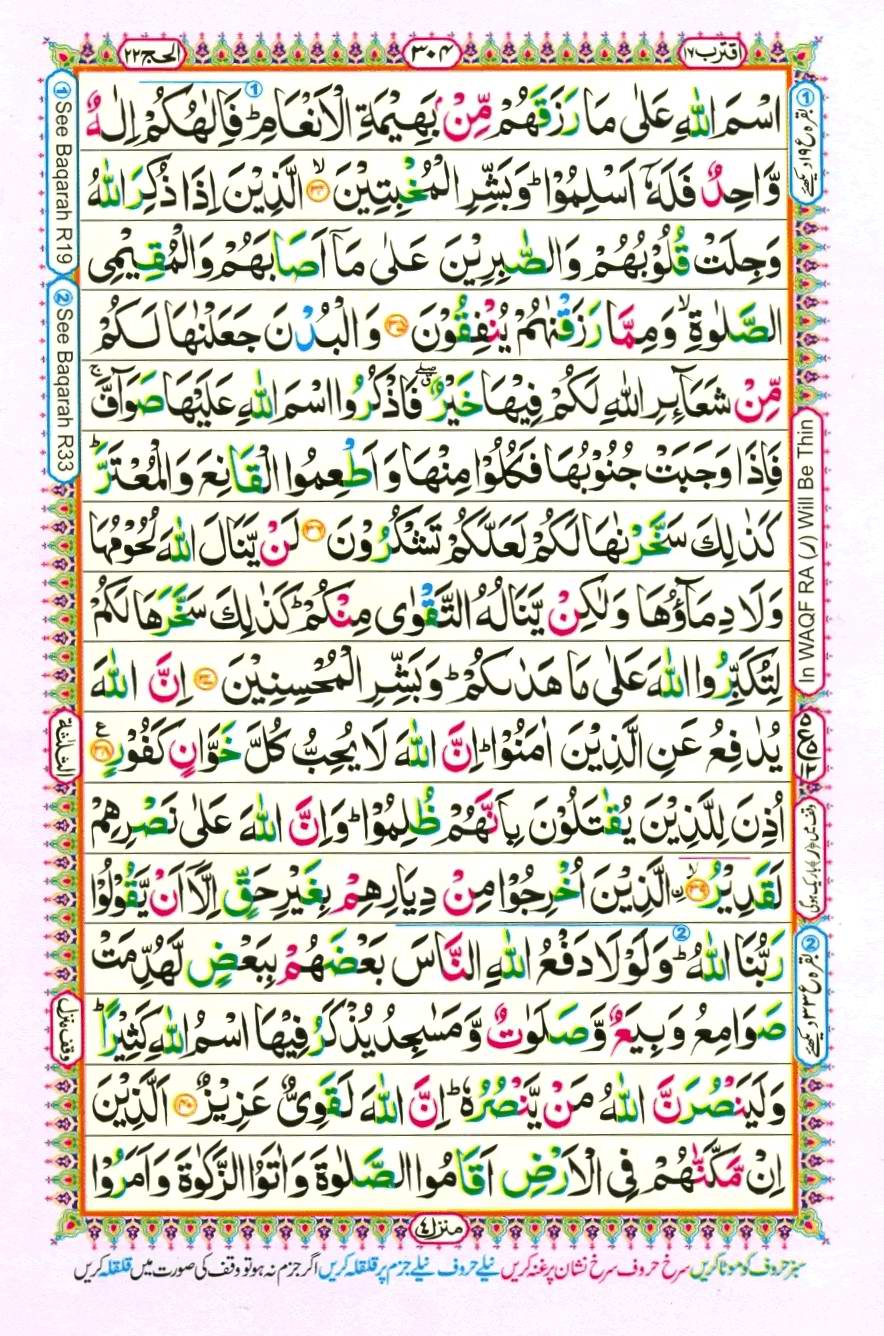 اقترب ١٧
٣٠٤
الحج ٢٢
اسْمَ اللّٰهِ عَلٰى مَا رَزَقَهُمْ مِّنْۢ بَهِيْمَةِ الْاَنْعَامِ ؕ فَاِلٰهُكُمْ اِلٰهٌ
وَّاحِدٌ فَلَهٗۤ اَسْلِمُوْا ؕ وَبَشِّرِ الْمُخْبِتِيْنَ ۙ﴿۳۴﴾ الَّذِيْنَ اِذَا ذُكِرَ اللّٰهُ
وَجِلَتْ قُلُوْبُهُمْ وَالصّٰبِرِيْنَ عَلٰى مَاۤ اَصَابَهُمْ وَالْمُقِيْمِى
الصَّلٰوةِ ۙ وَمِمَّا رَزَقْنٰهُمْ يُنْفِقُوْنَ ﴿۳۵﴾ وَالْبُدْنَ جَعَلْنٰهَا لَكُمْ
مِّنْ شَعَآئِرِ اللّٰهِ لَكُمْ فِيْهَا خَيْرٌ ۖۗ فَاذْكُرُوا اسْمَ اللّٰهِ عَلَيْهَا صَوَآفَّ ۚ
فَاِذَا وَجَبَتْ جُنُوْبُهَا فَكُلُوْا مِنْهَا وَاَطْعِمُوا الْقَانِعَ وَالْمُعْتَرَّ ؕ
كَذٰلِكَ سَخَّرْنٰهَا لَكُمْ لَعَلَّكُمْ تَشْكُرُوْنَ ﴿۳۶﴾ لَنْ يَّنَالَ اللّٰهَ لُحُوْمُهَا
وَلَا دِمَآؤُهَا وَلٰكِنْ يَّنَالُهُ التَّقْوٰى مِنْكُمْ ؕ كَذٰلِكَ سَخَّرَهَا لَكُمْ
لِتُكَبِّرُوا اللّٰهَ عَلٰى مَا هَدٰىكُمْ ؕ وَبَشِّرِ الْمُحْسِنِيْنَ ﴿۳۷﴾ اِنَّ اللّٰهَ
يُدٰفِعُ عَنِ الَّذِيْنَ اٰمَنُوْا ؕ اِنَّ اللّٰهَ لَا يُحِبُّ كُلَّ خَوَّانٍ كَفُوْرٍ ﴿۳۸﴾ ع
اُذِنَ لِلَّذِيْنَ يُقٰتَلُوْنَ بِاَنَّهُمْ ظُلِمُوْا ؕ وَاِنَّ اللّٰهَ عَلٰى نَصْرِهِمْ
لَقَدِيْرُ ۙ﴿۳۹﴾ ۨالَّذِيْنَ اُخْرِجُوْا مِنْ دِيَارِهِمْ بِغَيْرِ حَقٍّ اِلَّاۤ اَنْ يَّقُوْلُوْا
رَبُّنَا اللّٰهُ ؕ وَلَوْلَا دَفْعُ اللّٰهِ النَّاسَ بَعْضَهُمْ بِبَعْضٍ لَّهُدِّمَتْ
صَوَامِعُ وَبِيَعٌ وَّصَلَوٰتٌ وَّمَسٰجِدُ يُذْكَرُ فِيْهَا اسْمُ اللّٰهِ كَثِيْرًا ؕ
وَلَيَنْصُرَنَّ اللّٰهُ مَنْ يَّنْصُرُهٗ ؕ اِنَّ اللّٰهَ لَقَوِىٌّ عَزِيْزٌ ﴿۴۰﴾ اَلَّذِيْنَ
اِنْ مَّكَّنّٰهُمْ فِى الْاَرْضِ اَقَامُوا الصَّلٰوةَ وَاٰتَوُا الزَّكٰوةَ وَاَمَرُوْا
منزل ٤
سبز حروف کو موٹا کریں سرخ حروف سرخ نشان پر غنہ کریں نیلے حروف نیلے جزم پر قلقلہ کریں اگر جزم نہ ہو تو وقف کی صورت میں قلقلہ کریں
① See Baqarah R19
② See Baqarah R33
الثلثة
وقف منزل
① بقرہ ع ١٩ دیکھئے
In WAQF RA (ر) Will Be Thin
وقف میں (ر) باریک ہوگی
② بقرہ ع ٣٣ دیکھئے